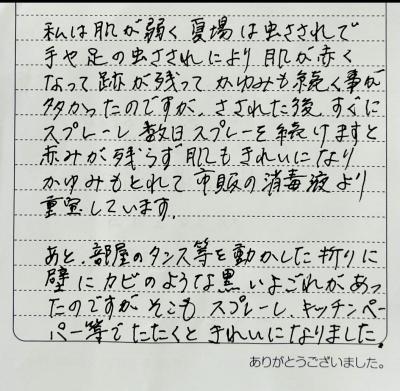 私は肌が弱く夏場は虫さされで
手や足の虫さされにより肌が赤く
なって跡が残ってかゆみも続く事が
多かったのですが、さされた後すぐに
スプレーし数日スプレーを続けますと
赤みが残らず肌もきれいになり
かゆみもとれて市販の消毒液より
重宝しています。
あと、部屋のタンス等を動かした折りに
壁にカビのような黒いよごれがあっ
たのですがそこもスプレーし、キッチンペー
パー等でたたくときれいになりました。
ありがとうございました。